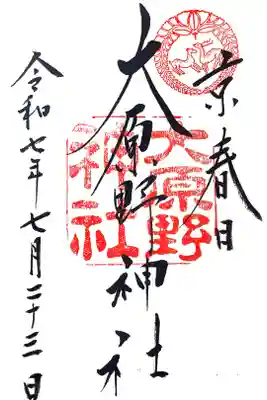 京春日
大原野神社
大原野
神社
令和七年七月二十三日